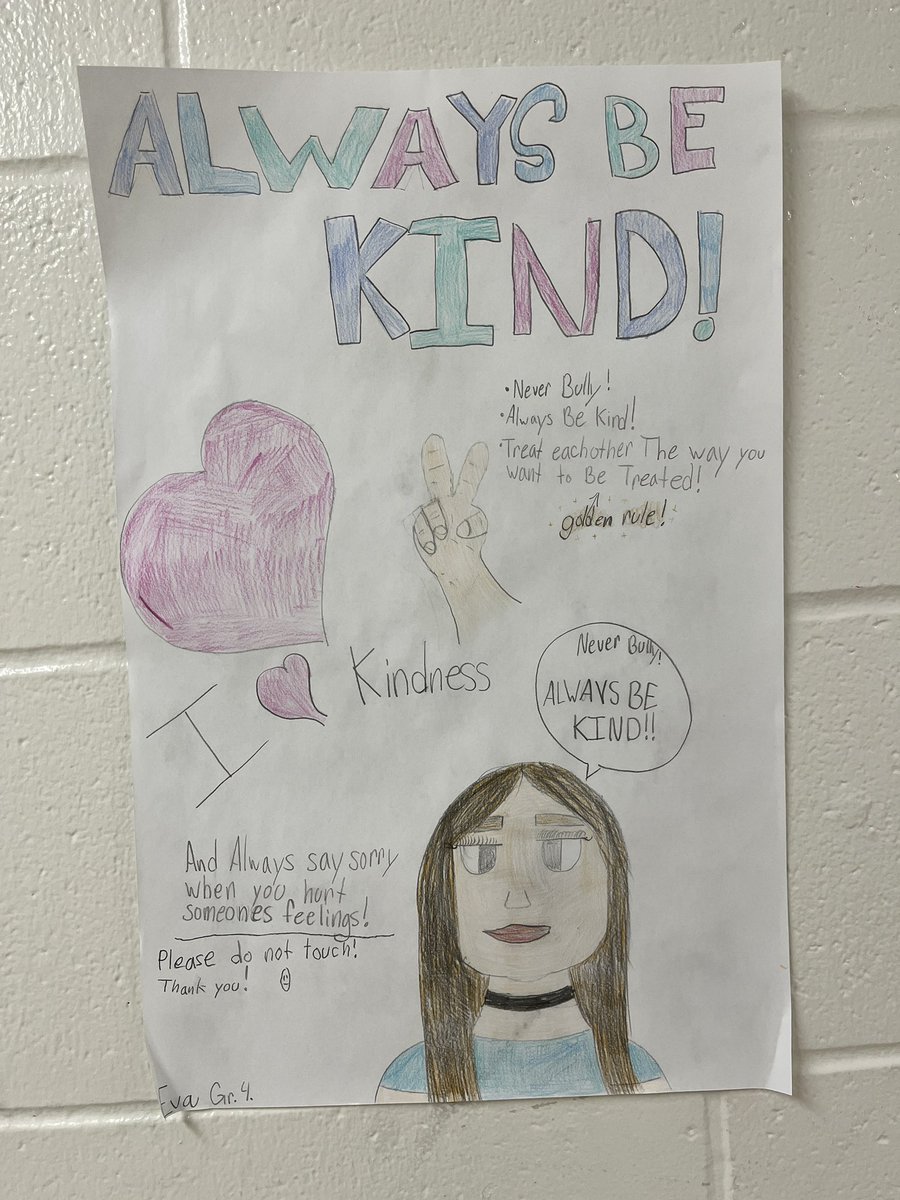 ALWAYS BE
KIND!
• Never Bully!
• Always Be Kind!
• Treat eachother The way you
want to Be Treated!
golden rule!
I Kindness
Never Bully!
ALWAYS BE
KIND!!
And Always say sorry
when you hurt
someones feelings!
Please do not touch!
Thank you!
Eva Gr.4.